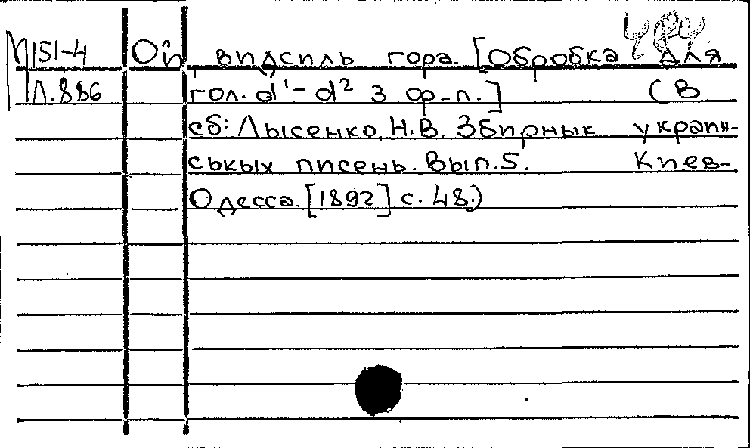 М151-4 Ой видсиль гора. [Обробка для
Л.886 гол. d¹-d² з ф-п.] (В
сб: Лысенко, Н.В. Збирнык украин-
ськых писень. Вып.5. Киев-
Одесса. [1892] с. 48.)